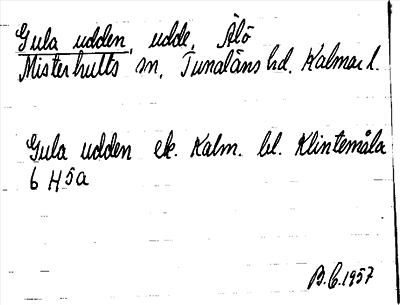 Gula udden, udde, Älö
Misterhults sn, Tunaläns hd. Kalmar l.
Gula udden ek. Kalm. bl. Klintemåla
6 H 5a
B.C. 1957